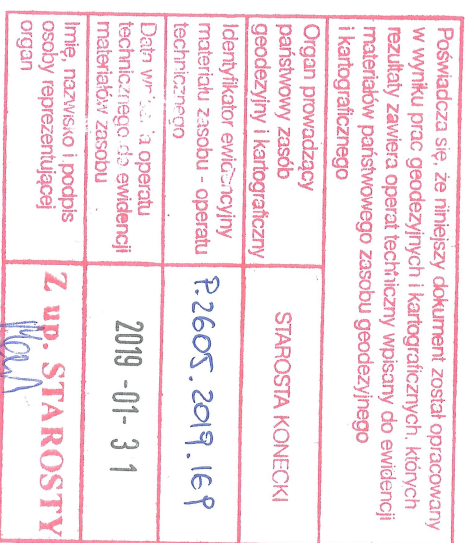 Poświadcza się, że niniejszy dokument został opracowany
w wyniku prac geodezyjnych i kartograficznych, których
rezultaty zawiera operat techniczny wpisany do ewidencji
materiałów państwowego zasobu geodezyjnego
i kartograficznego
Organ prowadzący
państwowy zasób
geodezyjny i kartograficzny
STAROSTA KONECKI
Identyfikator ewidencyjny
materiału zasobu - operatu
technicznego
P.2605.2019.169
Data wpisania operatu
technicznego do ewidencji
materiałów zasobu
2019 -01- 31
Imię, nazwisko i podpis
osoby reprezentującej
organ
Z up. STAROSTY